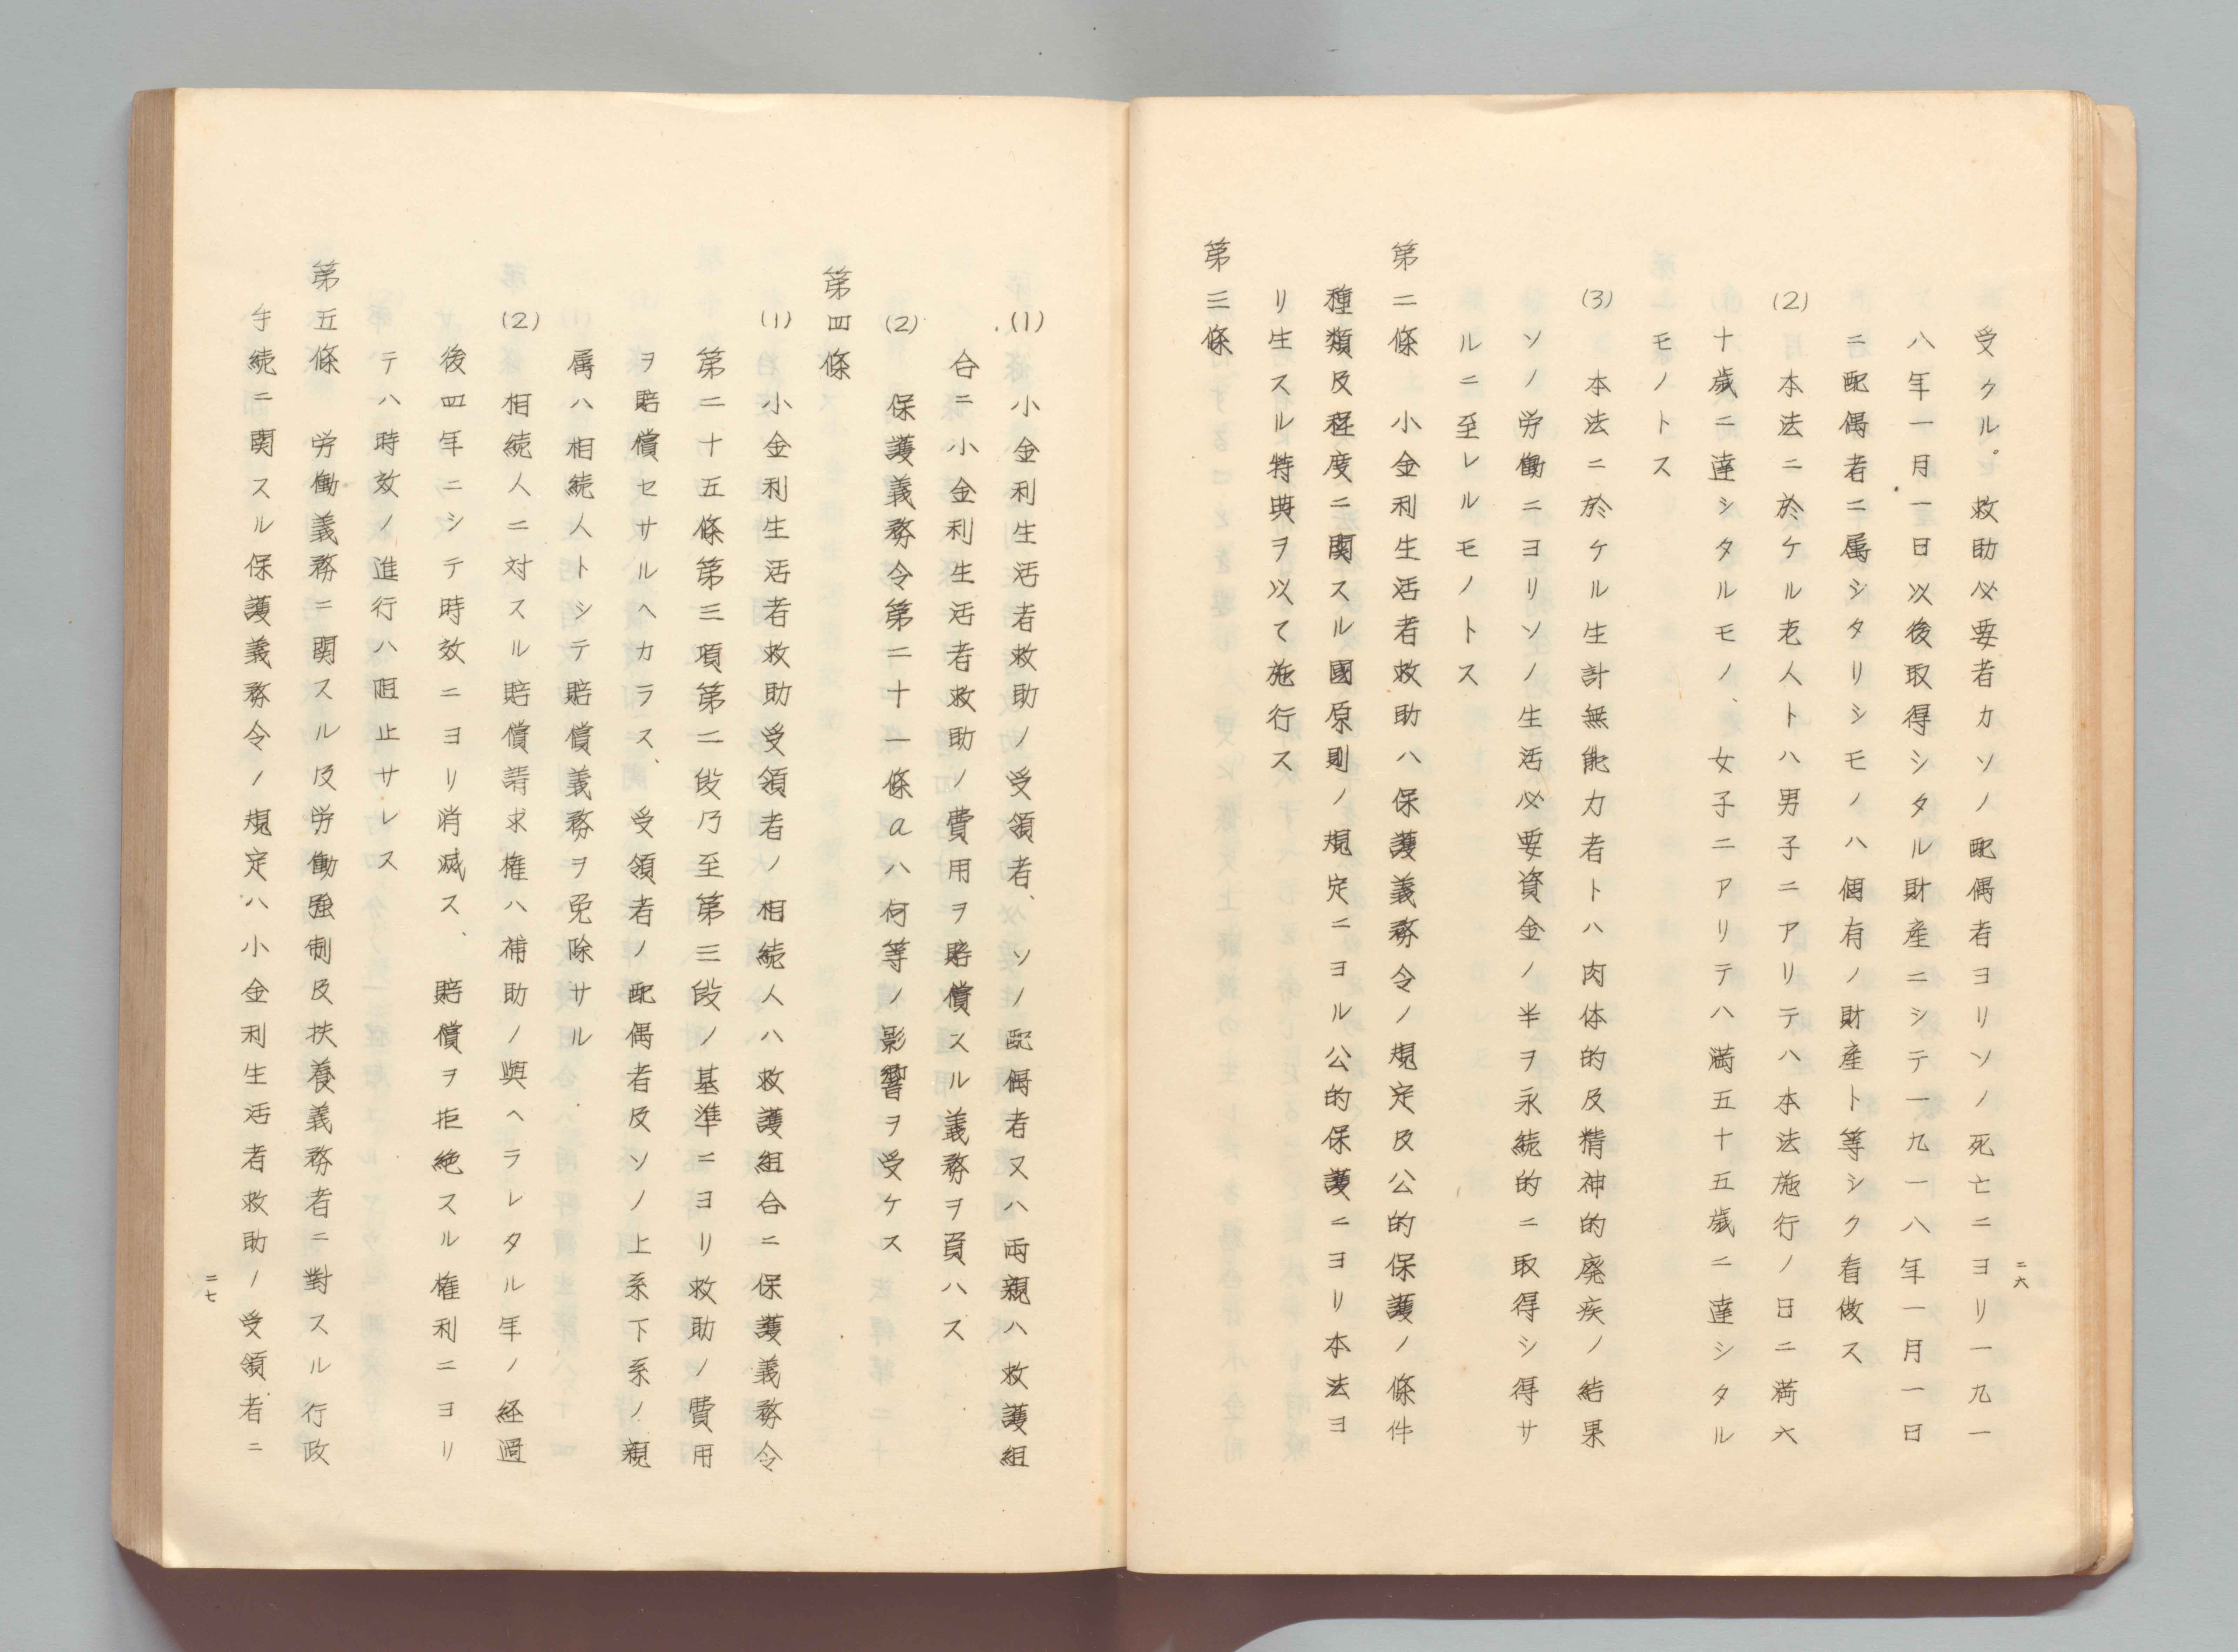 二六
受クル。救助必要者カソノ配偶者ヨリソノ死亡ニヨリ一九一
八年一月一日以後取得シタル財産ニシテ一九一八年一月一日
ニ配偶者ニ属シタリシモノハ個有ノ財産ト等シク看做ス
(2) 本法ニ於ケル老人トハ男子ニアリテハ本法施行ノ日ニ満六
十歳ニ達シタルモノ、女子ニアリテハ満五十五歳ニ達シタル
モノトス
(3) 本法ニ於ケル生計無能力者トハ肉体的及精神的廃疾ノ結果
ソノ労働ニヨリソノ生活必要資金ノ半ヲ永続的ニ取得シ得サ
ルニ至レルモノトス
第二條 小金利生活者救助ハ保護義務令ノ規定及公的保護ノ條件
種類及程度ニ関スル國原則ノ規定ニヨル公的保護ニヨリ本法ヨ
リ生スル特典ヲ以て施行ス
第三條
(1) 小金利生活者救助ノ受領者、ソノ配偶者又ハ両親ハ救護組
合ニ小金利生活者救助ノ費用ヲ賠償スル義務ヲ負ハス
(2) 保護義務令第二十一條aハ何等ノ影響ヲ受ケス
第四條
(1) 小金利生活者救助受領者ノ相続人ハ救護組合ニ保護義務令
第二十五條第三項第二段乃至第三段ノ基準ニヨリ救助ノ費用
ヲ賠償セサルヘカラス、受領者ノ配偶者及ソノ上系下系ノ親
属ハ相続人トシテ賠償義務ヲ免除サル
(2) 相続人ニ対スル賠償請求権ハ補助ノ與ヘラレタル年ノ経過
後四年ニシテ時效ニヨリ消滅ス、賠償ヲ拒絶スル権利ニヨリ
テハ時效ノ進行ハ阻止サレス
第五條 労働義務ニ関スル及労働強制及扶養義務者ニ對スル行政
手続ニ関スル保護義務令ノ規定ハ小金利生活者救助ノ受領者ニ
二七